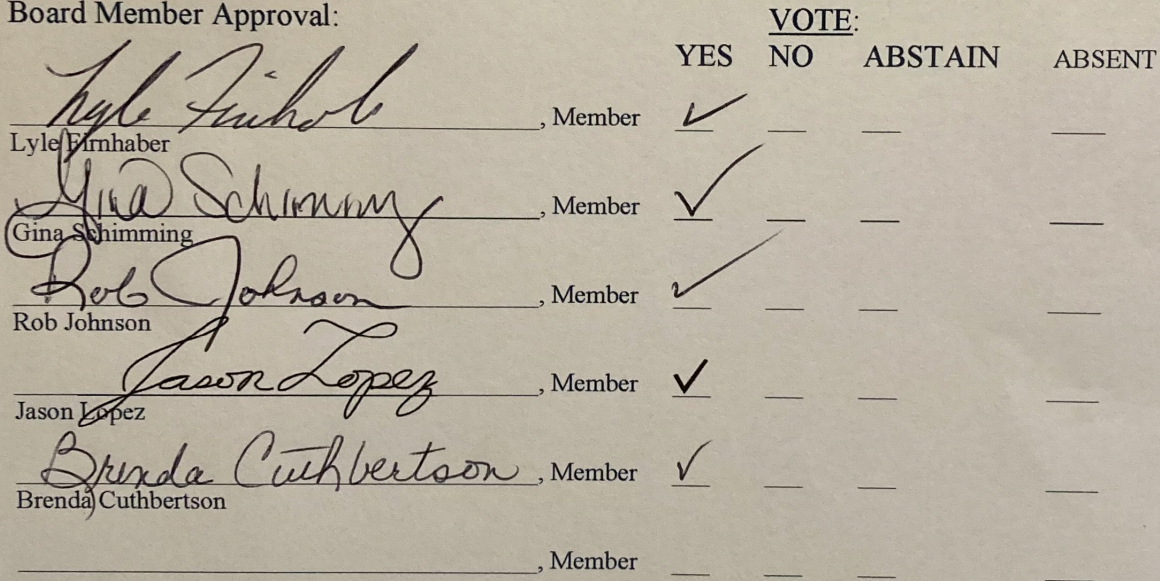 Board Member Approval: VOTE:
YES NO ABSTAIN ABSENT
Lyle , Member ✓
Lyle Firnhaber
Gina Schimming , Member ✓
Gina Schimming
Rob Johnson , Member ✓
Rob Johnson
Jason Lopez , Member ✓
Jason Lopez
Brenda Cuthbertson , Member ✓
Brenda Cuthbertson
, Member